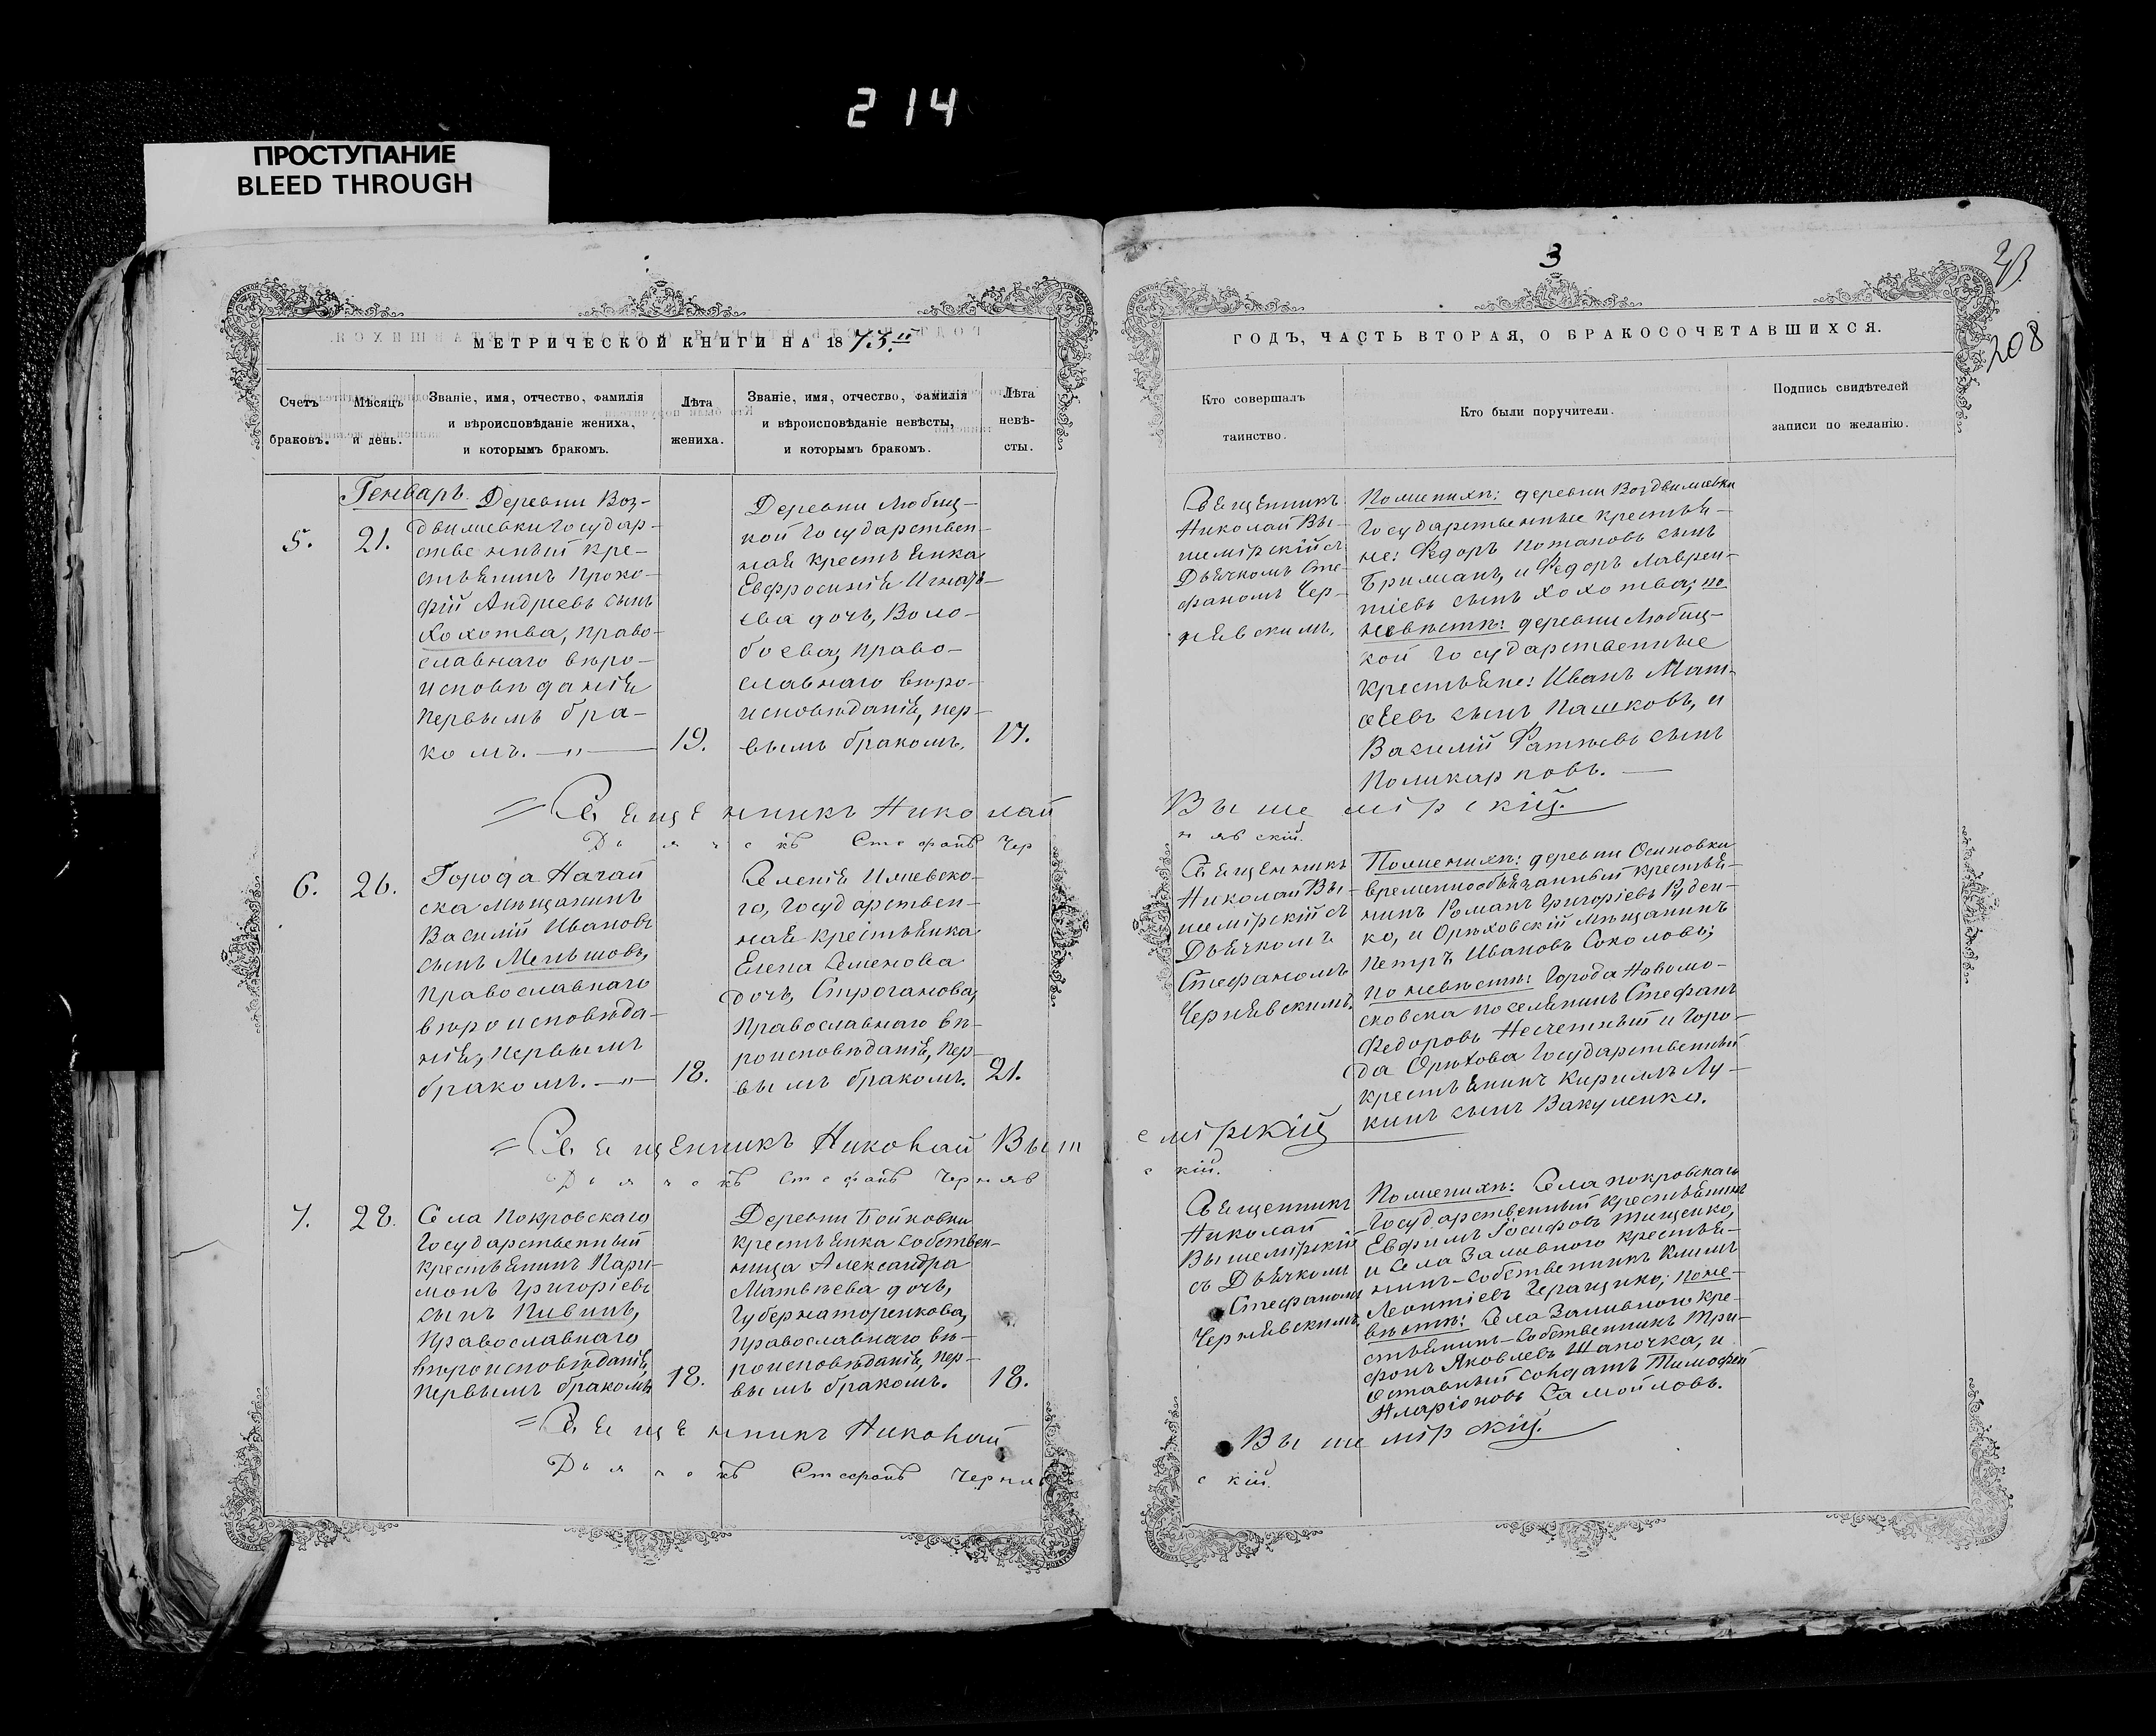 214
ПРОСТУПАНИЕ
BLEED THROUGH
МЕТРИЧЕСКОЙ КНИГИ НА 1873.
Счетъ
браковъ.
Мѣсяцъ
и день.
Званіе, имя, отчество, фамилія
и вѣроисповѣданіе жениха,
и которымъ бракомъ.
Лѣта
жениха.
Званіе, имя, отчество, фамилія
и вѣроисповѣданіе невѣсты,
и которымъ бракомъ.
Лѣта
невѣ-
сты.
Генварь.
5.
21.
Деревни Воз-
движевки Государ-
ственный кре-
стьянинъ Проко-
фій Андреевъ сынъ
Хохотва, право-
славнаго вѣро-
исповѣданія
первымъ бра-
комъ. —„—
19.
Деревни Любиц-
кой Государствен-
ная крестьянка
Евфросинія Игнать-
ева дочь, Воло-
боева, право-
славнаго вѣро-
исповѣданія, пер-
вымъ бракомъ.
17.
= Священникъ Николай
Дьячокъ Стефанъ Чер
6.
26.
Города Нагай
ска мѣщанинъ
Василій Ивановъ
сынъ Меньшовъ,
православнаго
вѣроисповѣда-
нія, первымъ
бракомъ. —„—
18.
Селенія
го, Государствен-
ная крестьянка
Елена Семенова
дочь, Строганова,
православнаго вѣ-
роисповѣданія, пер-
вымъ бракомъ.
21.
= Священникъ Николай Выш
Дьячокъ Стефанъ Черняв
7.
28.
Села Покровскаго
Государственный
крестьянинъ Пари-
монъ Григоріевъ
сынъ Пивинъ,
православнаго
вѣроисповѣданія,
первымъ бракомъ
18.
Деревни Бойковки
крестьянка собствен-
ница Александра
Матвѣева дочь,
Губернаторенкова,
православнаго вѣ-
роисповѣданія, пер-
вымъ бракомъ.
18.
= Священникъ Николай
Дьячокъ Стефанъ Черняв
3
208
ГОДЪ, ЧАСТЬ ВТОРАЯ, О БРАКОСОЧЕТАВШИХСЯ.
Кто совершалъ
таинство.
Кто были поручители.
Подпись свидѣтелей
записи по желанію.
Священникъ
Николай Вы-
шемірскій съ
Дьячкомъ Сте-
фаномъ Чер-
нявскимъ.
По женихѣ: деревни Воздвижевки
Государственные крестья-
не: Федоръ Потаповъ сынъ
Брижанъ, и Федоръ Лаврен-
тіевъ сынъ Хохотва; по
невѣстѣ: деревни Любиц-
кой Государственные
крестьяне: Иванъ Мат-
ѳеевъ сынъ Пашковъ, и
Василій Фатѣевъ сынъ
Поликарповъ. —
Вышемірскій.
нявскій.
Священникъ
Николай Вы-
шемірскій съ
Дьячкомъ
Стефаномъ
Чернявскимъ.
По женихѣ: деревни Осиповки
временнообязанный крестья-
нинъ Романъ Григоріевъ Руден-
ко, и Орѣховскій мѣщанинъ
Петръ Ивановъ Соколовъ;
по невѣстѣ: Города Новомо-
сковска поселянинъ Стефанъ
Федоровъ Несчетный и Горо-
да Орѣхова Государственный
крестьянинъ Кириллъ Лу-
кинъ сынъ Вакуленко.
емірскій
скій.
Священникъ
Николай
Вышемірскій
съ Дьячкомъ
Стефаномъ
Чернявскимъ.
По женихѣ: Села Покровскаго
Государственный крестьянинъ
Евфимъ Іосифовъ Тищенко,
и Села Заливного крестья-
нинъ-собственникъ Климъ
Леонтіевъ Геращенко; по не-
вѣстѣ: Села Заливного кре-
стьянинъ-собственникъ Три-
фонъ Яковлевъ Шапочка, и
отставный солдатъ Тимофей
Иларіоновъ Самойловъ.
Вышемірскій.
скій.